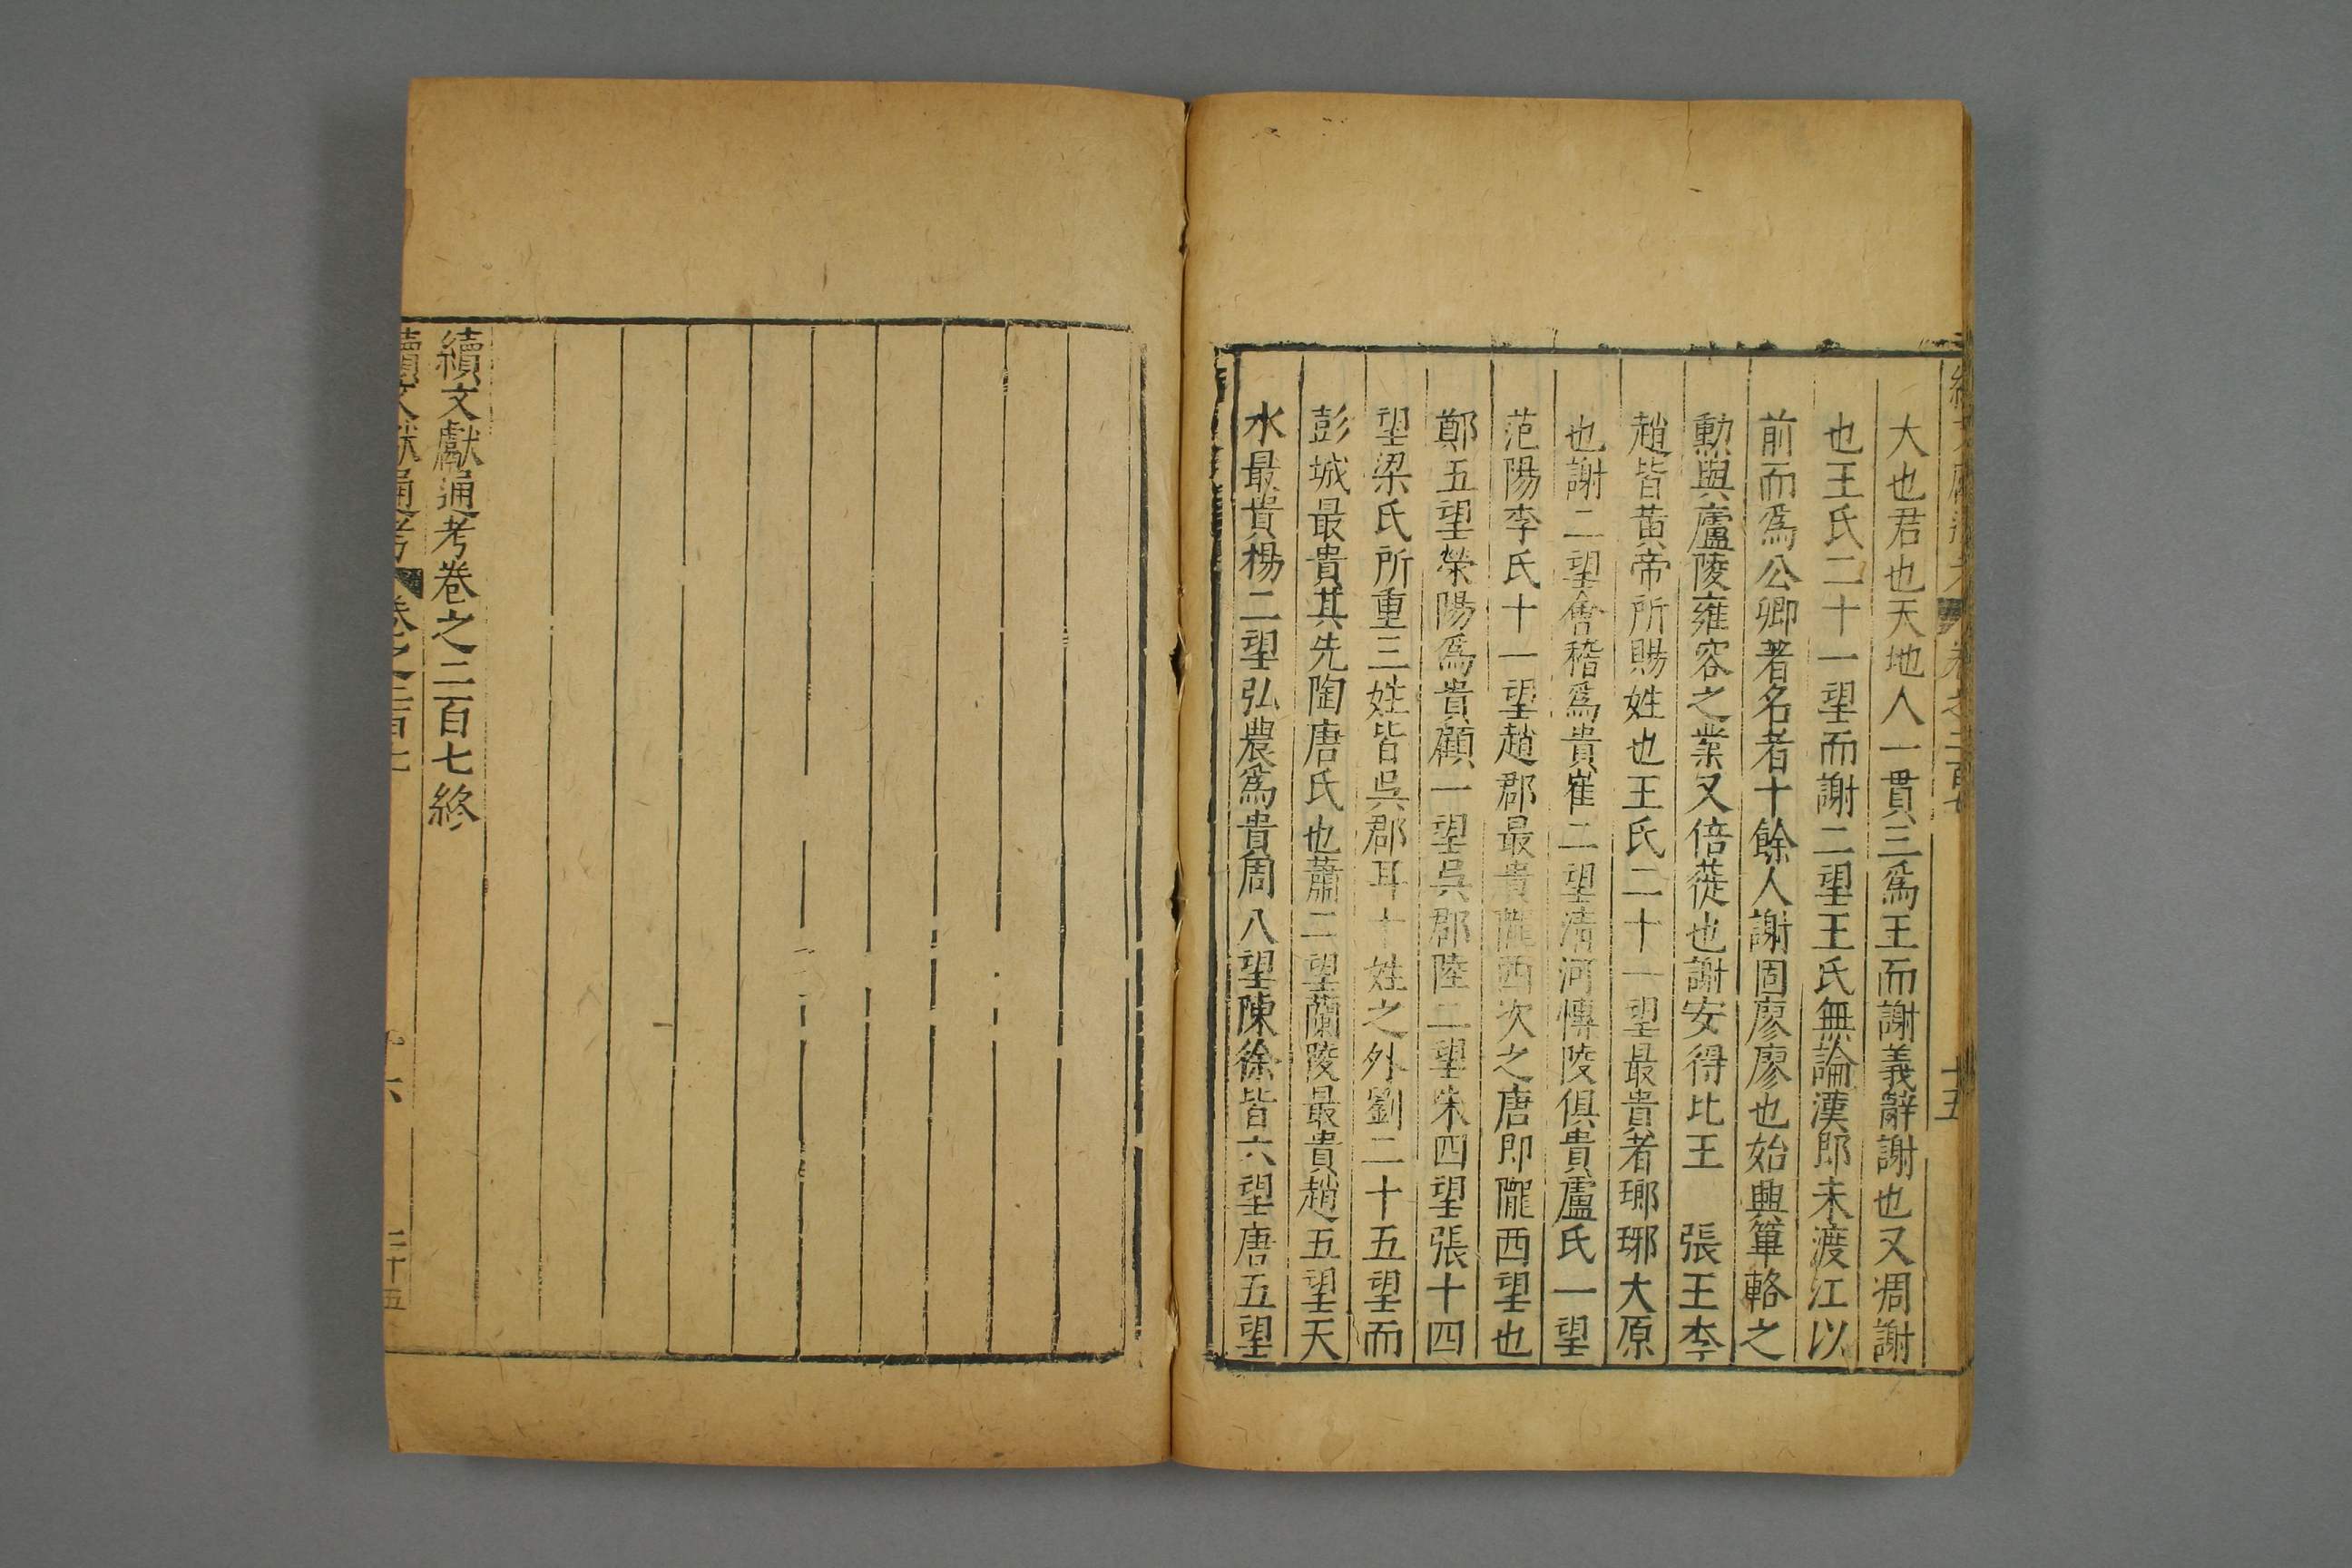 大也君也天地人一貫三爲王而謝義辭謝也又凋謝
也王氏二十一望而謝二望王氏無論漢郎未渡江以
前而爲公卿著名者十餘人謝固廖廖也始興篳輅之
勳與廬陵雍容之業又倍蓰也謝安得比王 張王李
趙皆黄帝所賜姓也王氏二十一望最貴者瑯琊大原
也謝二望會稽爲貴崔二望清河慱陵俱貴盧氏一望
范陽李氏十一望趙郡最貴隴西次之唐即隴西望也
鄭五望榮陽爲貴顧一望吳郡陸二望朱四望張十四
望梁氏所重三姓皆吳郡耳十姓之外劉二十五望而
彭城最貴其先陶唐氏也蕭二望蘭陵最貴趙五望天
水最貴楊二望弘農爲貴周八望陳徐皆六望唐五望
續文獻通考卷之二百七終
續文獻通考 卷之二百七 十六 二十五
續文獻通考 卷之二百七 十五